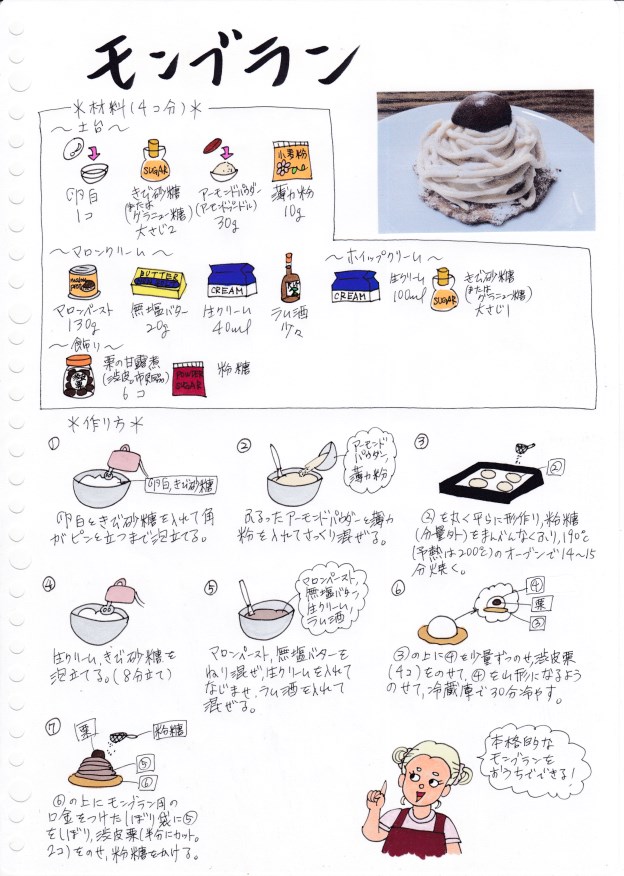 モンブラン
＊材料(4コ分)＊
〜土台〜
SUGAR
小麦粉
卵白
1コ
きび砂糖
(または
グラニュー糖)
大さじ2
アーモンドパウダー
(アーモンドプードル)
30g
薄力粉
10g
〜マロンクリーム〜
BUTTER
CREAM
マロンペースト
130g
無塩バター
20g
生クリーム
40ml
ラム酒
少々
〜ホイップクリーム〜
CREAM
生クリーム
100ml
SUGAR
きび砂糖
(または
グラニュー糖)
大さじ1
〜飾り〜
栗の甘露煮
(渋皮。市販品)
6コ
POWDER
SUGAR
粉糖
＊作り方＊
①
卵白,きび砂糖
卵白ときび砂糖を入れて角
がピンと立つまで泡立てる。
②
アーモンド
パウダー,
薄力粉
ふるったアーモンドパウダーと薄力
粉を入れてさっくり混ぜる。
③
②
②を丸く平らに形作り,粉糖
(分量外)をまんべんなくふり,190℃
(予熱は200℃)のオーブンで14〜15
分焼く。
④
生クリーム,きび砂糖を
泡立てる。(8分立て)
⑤
マロンペースト,
無塩バター,
生クリーム,
ラム酒
マロンペースト,無塩バターを
ねり混ぜ,生クリームを入れて
なじませ,ラム酒を入れて
混ぜる。
⑥
④
栗
③
③の上に④を少量ずつのせ,渋皮栗
(4コ)をのせて,④を山形になるよう
のせて,冷蔵庫で30分冷やす。
⑦
栗
粉糖
⑤
⑥
⑥の上にモンブラン用の
口金をつけたしぼり袋に⑤
をしぼり,渋皮栗(半分にカット。
2コ)をのせ,粉糖をかける。
本格的な
モンブランを
おうちでできる!